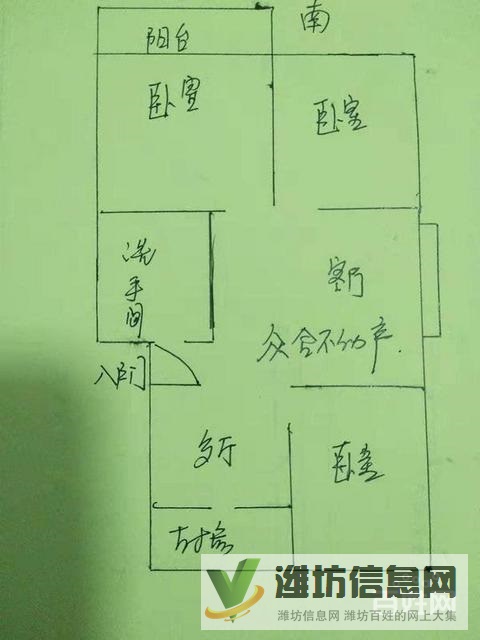 南
阳台
卧室
卧室
洗手间
客厅
众合不动产.
入户门
歺厅
卧室
潍坊信息网
潍坊信息网 潍坊百姓的网上大集